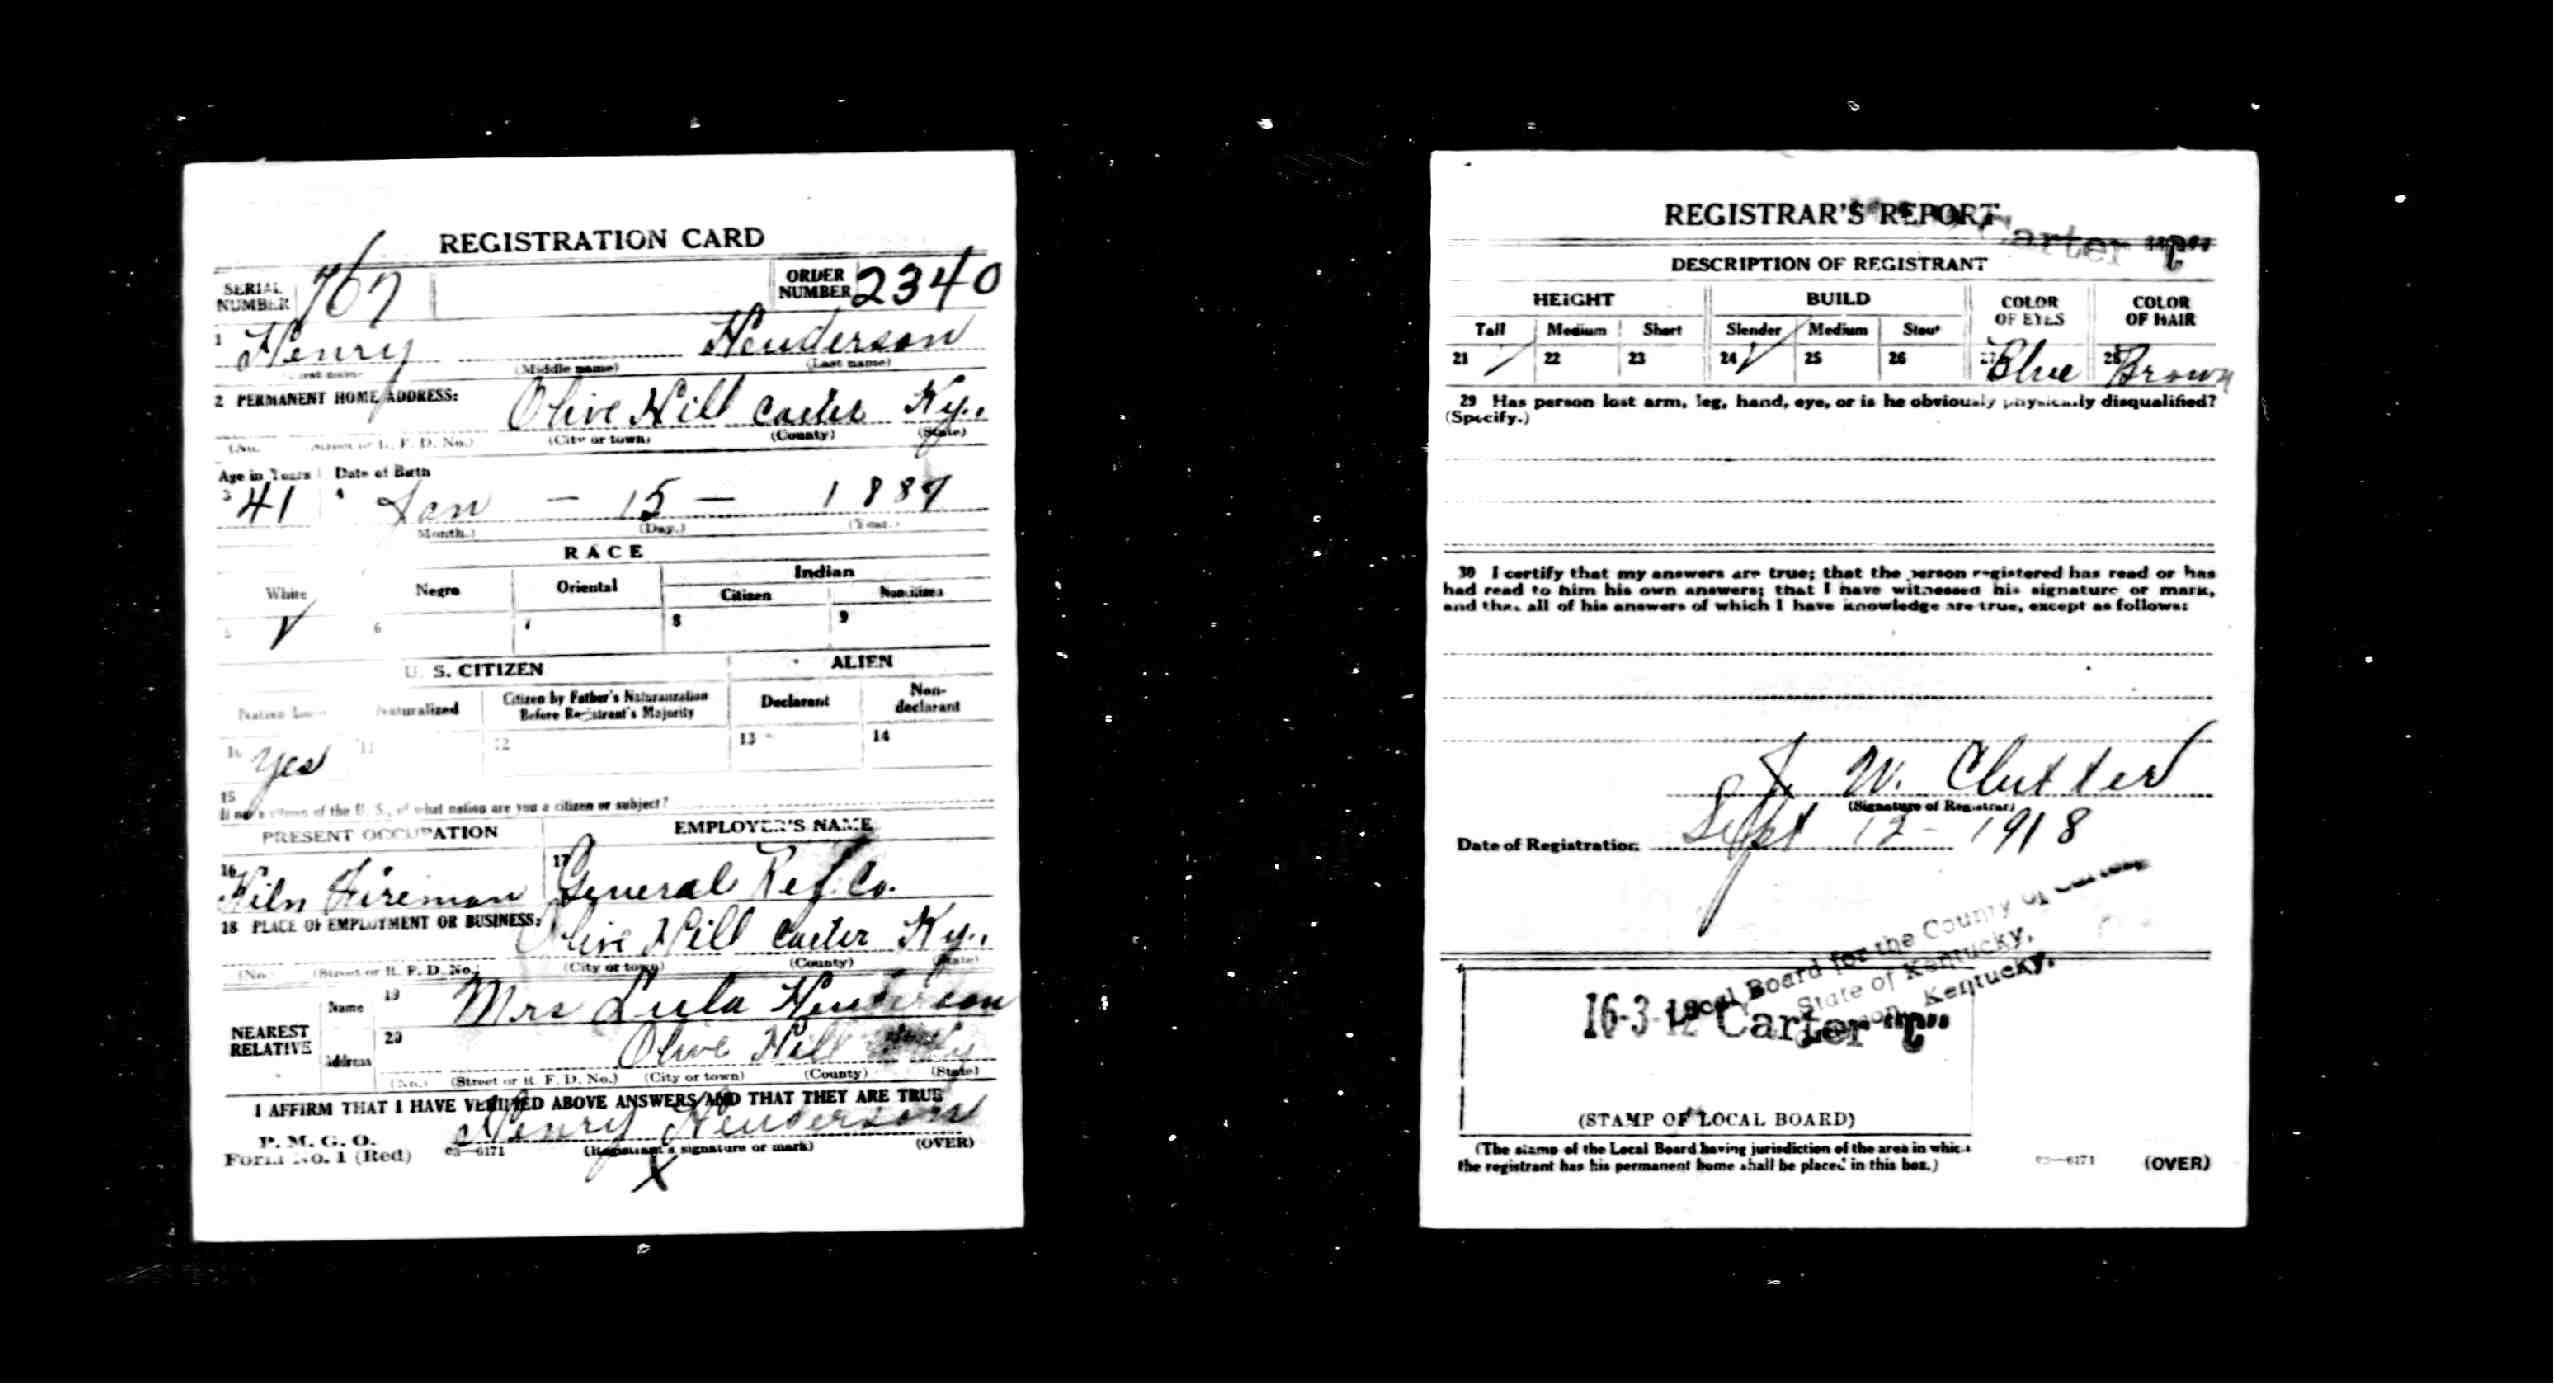 REGISTRATION CARD
SERIAL NUMBER 767 ORDER NUMBER 2340
1 Henry Henderson
(Middle name) (Last name)
2 PERMANENT HOME ADDRESS: Olive Hill Carter Ky.
(No. Street or R. F. D. No.) (City or town) (County) (State)
Age in Years Date of Birth
3 41 4 Jan - 15 - 1887
(Month.) (Day.) (Year.)
RACE
White Negro Oriental Indian
Citizen Noncitizen
5 ✓ 6 7 8 9
U. S. CITIZEN ALIEN
Native Born Naturalized Citizen by Father's Naturalization Before Registrant's Majority Declarant Non-declarant
10 Yes 11 12 13 14
15
If not a citizen of the U. S., of what nation are you a citizen or subject?
PRESENT OCCUPATION EMPLOYER'S NAME
16 Kiln Fireman 17 General Ref. Co.
18 PLACE OF EMPLOYMENT OR BUSINESS:
Olive Hill Carter Ky.
(No.) (Street or R. F. D. No.) (City or town) (County) (State)
NEAREST RELATIVE
Name 19 Mrs Lula Henderson
Address 20 Olive Hill Ky
(No.) (Street or R. F. D. No.) (City or town) (County) (State)
I AFFIRM THAT I HAVE VERIFIED ABOVE ANSWERS AND THAT THEY ARE TRUE
P. M. G. O.
Form No. 1 (Red) 03—6171 Henry Henderson
(Registrant's signature or mark) (OVER)
X
REGISTRAR'S REPORT
Carter "C"
DESCRIPTION OF REGISTRANT
HEIGHT BUILD COLOR OF EYES COLOR OF HAIR
Tall Medium Short Slender Medium Stout
21 ✓ 22 23 24 ✓ 25 26 27 Blue 28 Brown
29 Has person lost arm, leg, hand, eye, or is he obviously physically disqualified?
(Specify.)
30 I certify that my answers are true; that the person registered has read or has
had read to him his own answers; that I have witnessed his signature or mark,
and that all of his answers of which I have knowledge are true, except as follows:
J. W. Clutter
(Signature of Registrar)
Date of Registration Sept 12 - 1918
Local Board for the County of Carter,
State of Kentucky,
Kentucky.
16-3-12 Carter "C"
(STAMP OF LOCAL BOARD)
(The stamp of the Local Board having jurisdiction of the area in which
the registrant has his permanent home shall be placed in this box.)
03—6171 (OVER)